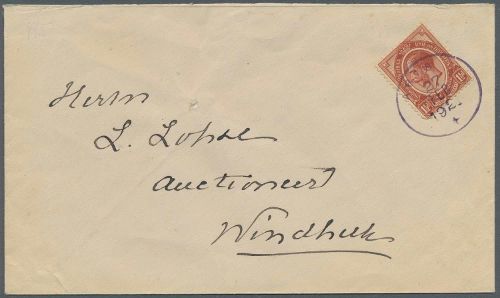 Herrn
L. Lohse
Auctioneer
Windhuk
27
192